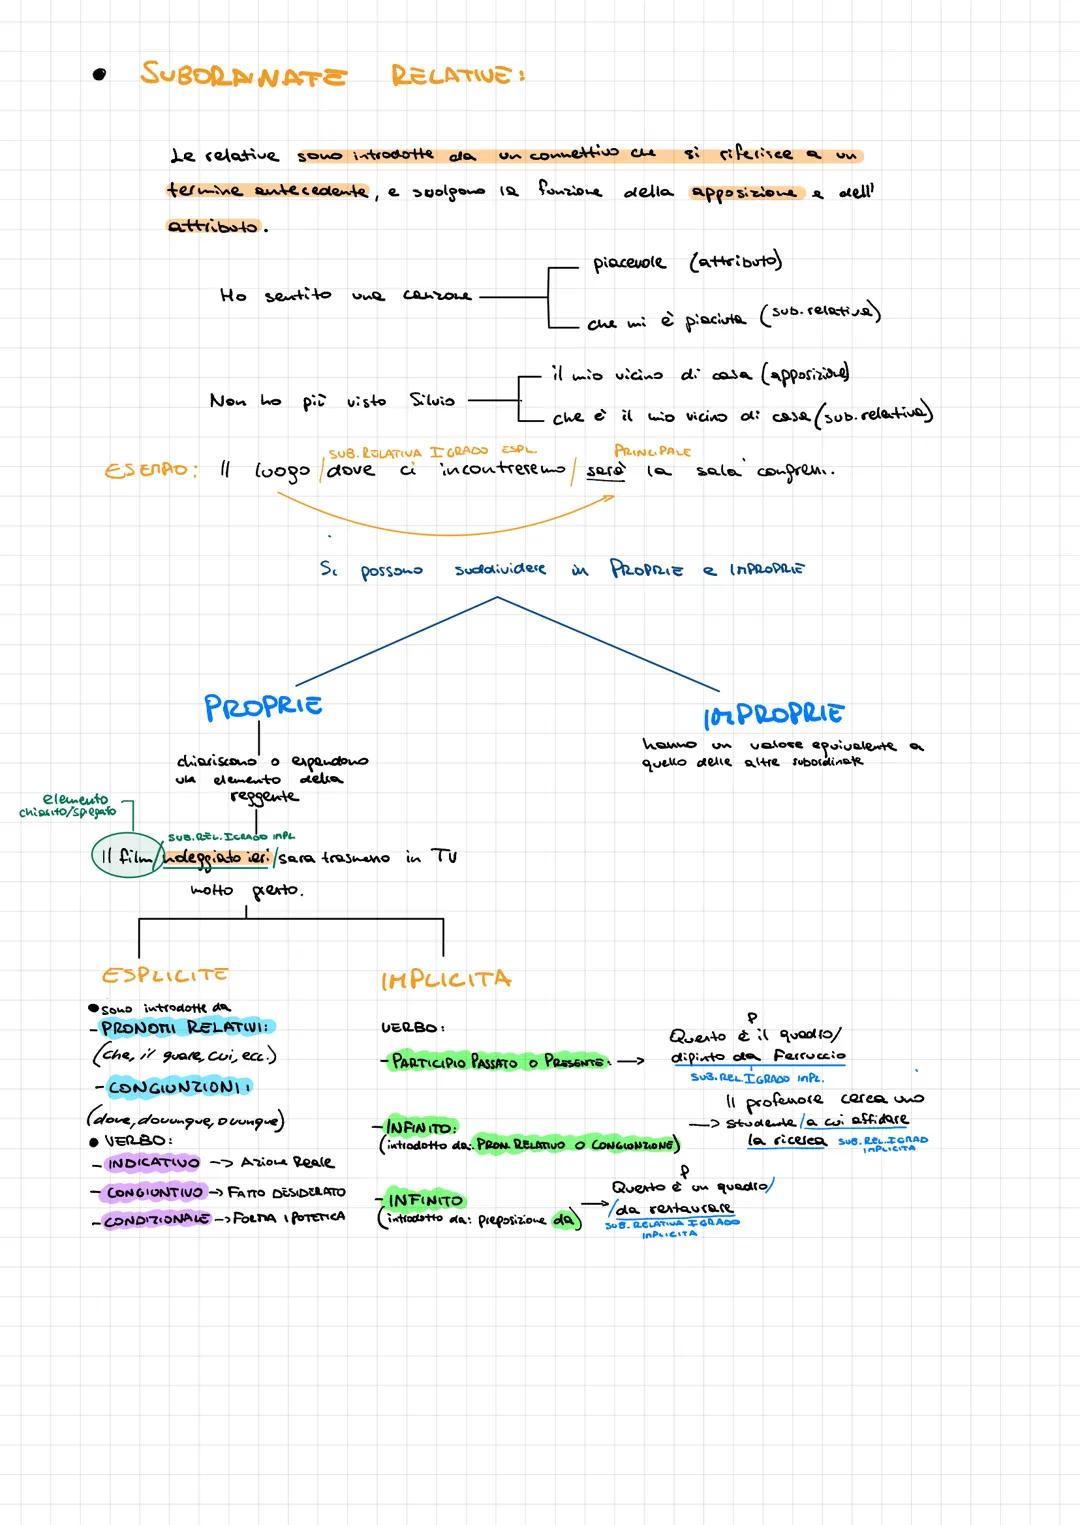 • SUBORDINATE RELATIVE:
Le relative sono introdotte da un connettivo che si riferisce a un
termine antecedente, e svolgono la funzione della apposizione e dell'
attributo.
piacevole (attributo)
Ho sentito una canzone
che mi è piaciuta (sub. relativa)
il mio vicino di casa (apposizione)
Non ho più visto Silvio
che è il mio vicino di casa (sub. relativa)
SUB. RELATIVA I GRADO ESPL. PRINCIPALE
ESEMPIO: Il luogo / dove ci incontreremo / sarà la sala congressi.
Si possono suddividere in PROPRIE e IMPROPRIE
PROPRIE
chiariscono o espandono
un elemento della
reggente
IMPROPRIE
hanno un valore equivalente a
quello delle altre subordinate
elemento
chiarito/spiegato
SUB. REL. I GRADO IMPL
Il film / noleggiato ieri / sarà trasmesso in TV
molto presto.
ESPLICITE
• sono introdotte da
- PRONOMI RELATIVI:
(che, il quale, cui, ecc.)
- CONGIUNZIONI:
(dove, dovunque, ovunque)
• VERBO:
- INDICATIVO --> Azione Reale
- CONGIUNTIVO -> FATTO DESIDERATO
- CONDIZIONALE -> FORMA IPOTETICA
IMPLICITA
VERBO:
- PARTICIPIO PASSATO O PRESENTE: -->
P
Questo è il quadro/
dipinto da Ferruccio
SUB. REL. I GRADO IMPL.
- INFINITO:
(introdotto da: PRON. RELATIVO O CONGIUNZIONE)
Il professore cerca uno
--> studente / a cui affidare
la ricerca SUB. REL. I GRAD
IMPLICITA
- INFINITO
(introdotto da: preposizione da)
P
Questo è un quadro/
--> /da restaurare
SUB. RELATIVA I GRADO
IMPLICITA